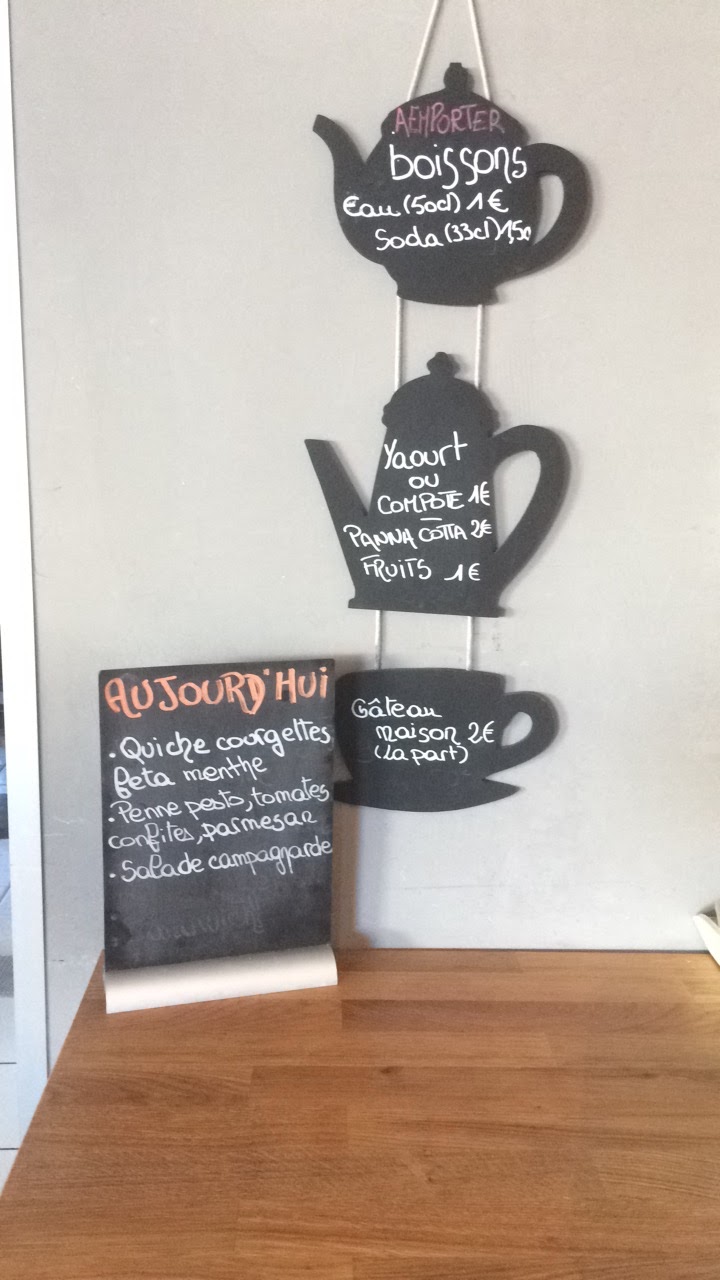 AEMPORTER
boissons
Eau (50cl) 1€
Soda (33cl) 1,50
Yaourt
OU
COMPOTE 1€
PANNA COTTA 2€
FRUITS 1€
Gâteau
maison 2€
(la part)
AUJOURD'HUI
. Quiche courgettes
feta menthe
. Penne pesto, tomates
confites, parmesan
. Salade campagnarde